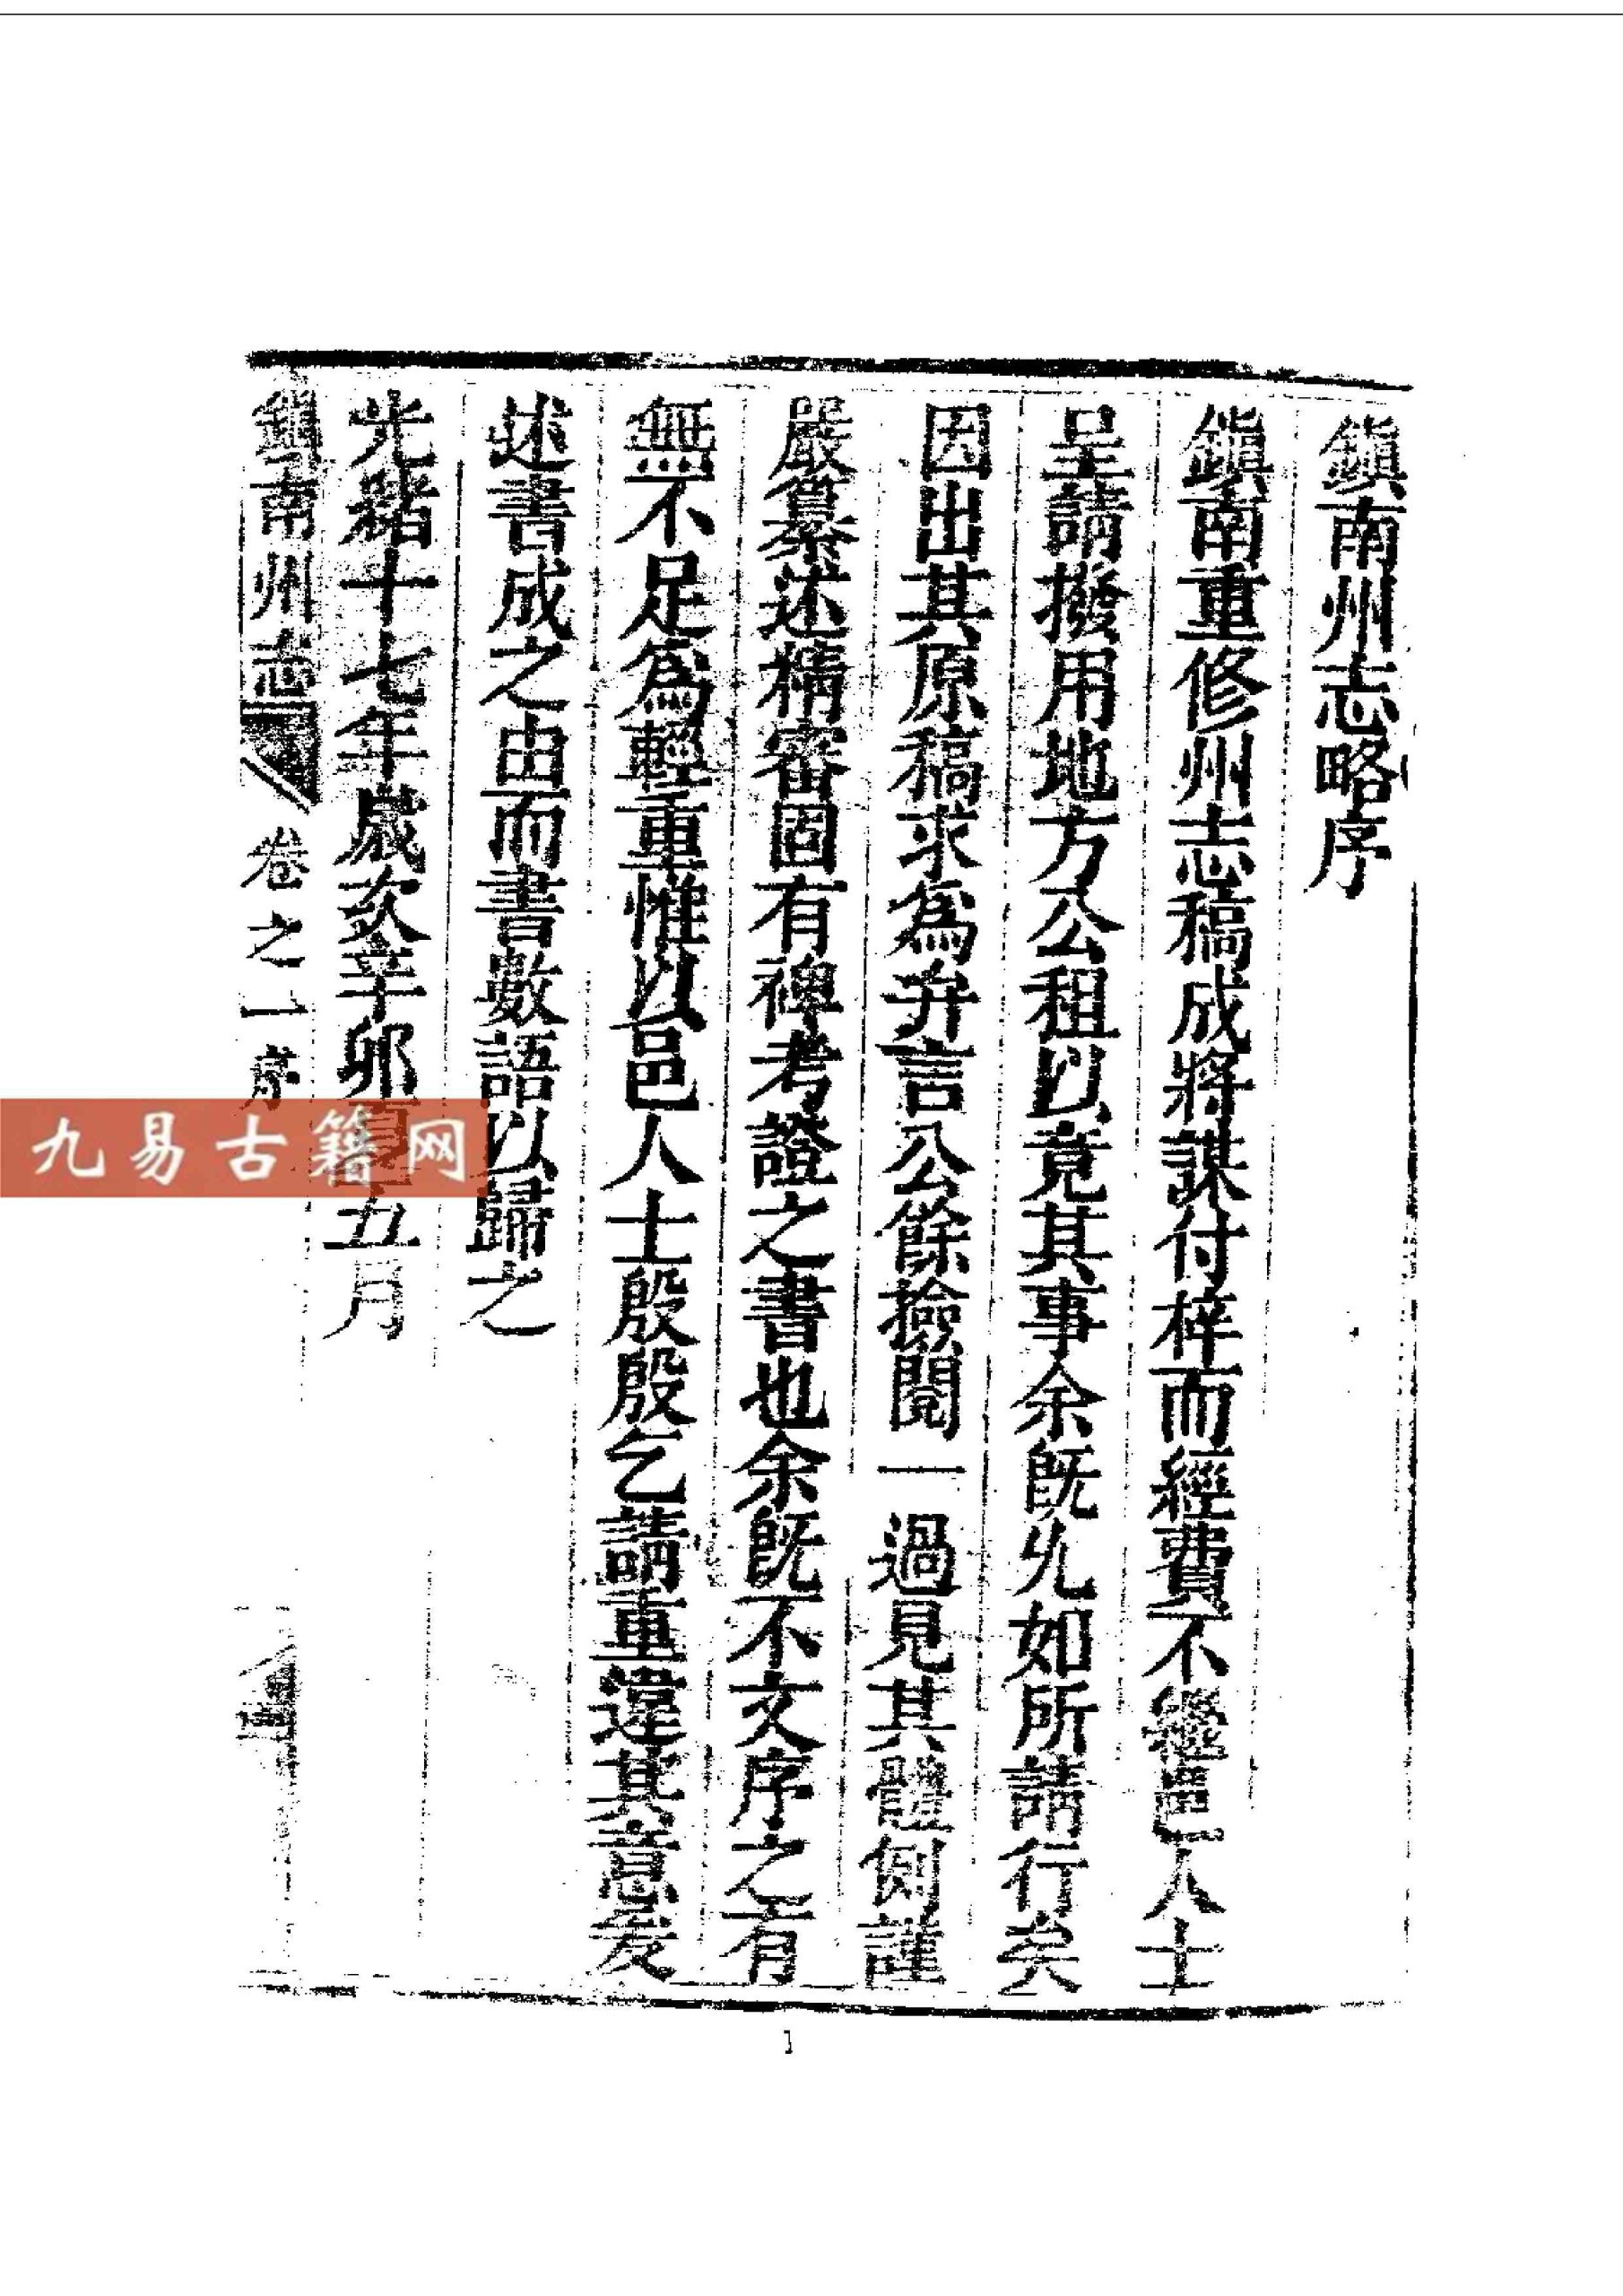 鎮南州志略序
鎮南重修州志稿成將謀付梓而經費不繼邑人士
呈請撥用地方公租以竟其事余既允如所請行矣
因出其原稿求為弁言公餘撿閱一過見其體例謹
嚴纂述精審固有裨考證之書也余既不文序之有
無不足為輕重惟以邑人士殷殷乞請重違其意爰
述書成之由而書數語以歸之
光緒十七年歲次辛卯夏五月
鎮南州志 卷之一序
九易古籍网
1